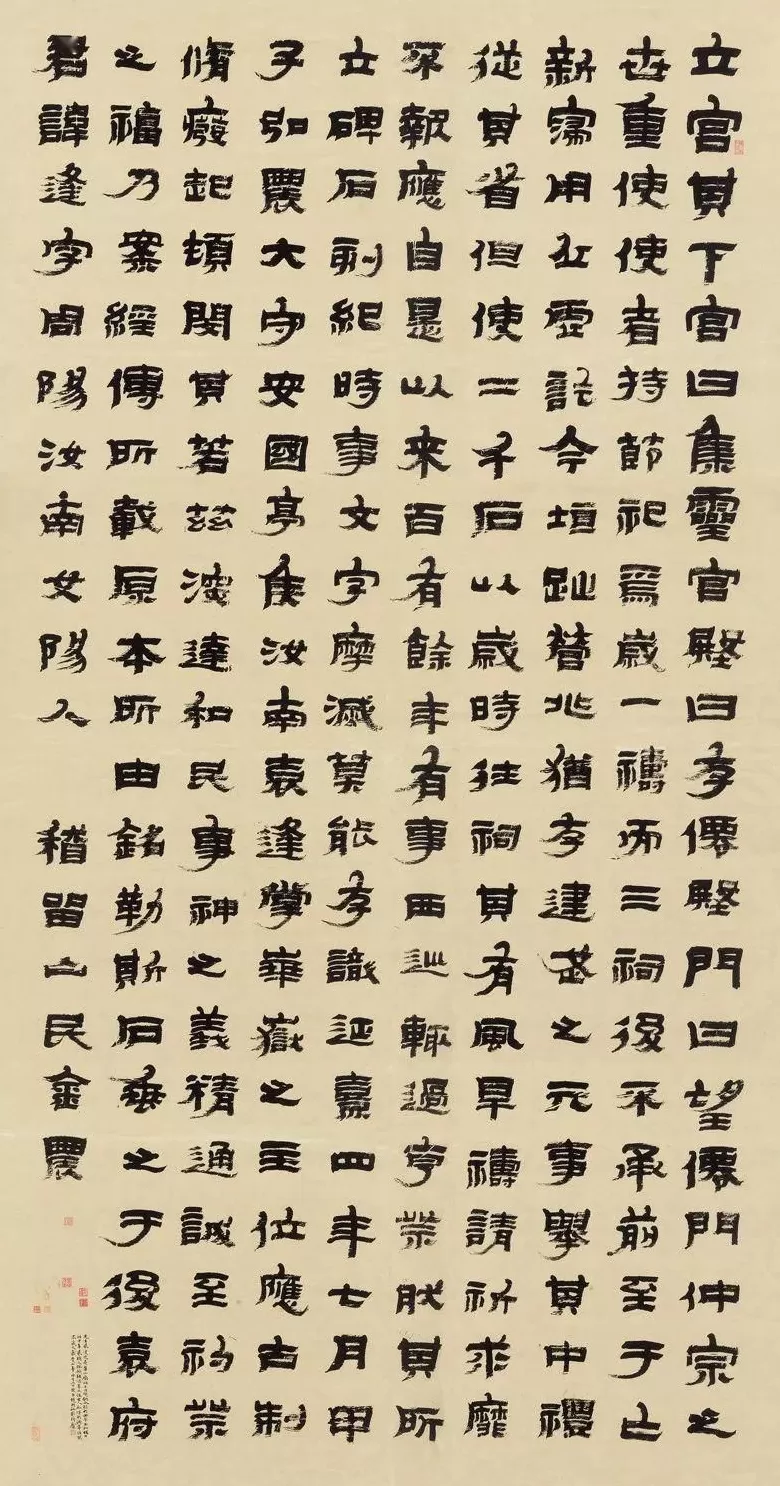 立宮其下宮曰集靈宮殿曰存僊殿門曰望僊門仲宗之
世重使使者持節祀焉歲一禱而三祠後不承前至于亡
新寖用丘虛訖今垣趾營兆猶存建武之元事舉其中禮
從其省但使二千石以歲時往祠其有風旱禱請祈求靡
不報應自是以來百有餘年有事西巡輒過享祭然其所
立碑石刻紀時事文字摩滅莫能存識延熹四年七月甲
子弘農大守安國亭侯汝南袁逢掌華嶽之主位應古制
脩癈起頓閔其若茲深達和民事神之義精通誠至礿祭
之福乃案經傳所載原本所由銘勒斯石垂之于後袁府
君諱逢字周陽汝南女陽人 稽留山民金農